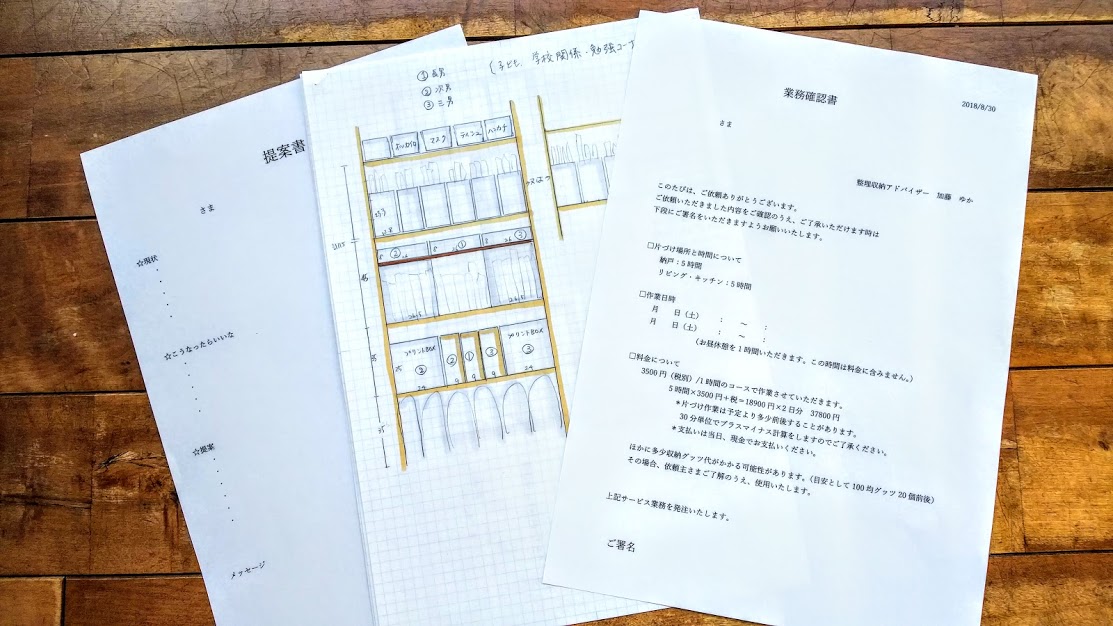 提案書
さま
☆現状
・
・
・
・
☆こうなったらいいな
・
・
・
・
☆提案
・
・
・
・
・
メッセージ
① 長男
② 次男
③ 三男
(子ども、学校関係・勉強コーナ
マスク
ティッシュ
ハンカチ
② ① ③
26.5
プリントBOX
②
②
①
③
プリントBOX
③
25
24
9
9
9
24
業務確認書
2018/8/30
さま
整理収納アドバイザー 加藤 ゆか
このたびは、ご依頼ありがとうございます。
ご依頼いただきました内容をご確認のうえ、ご了承いただけます時は
下段にご署名をいただきますようお願いいたします。
□片づけ場所と時間について
納戸：5時間
リビング・キッチン：5時間
□作業日時
月 日（土） ： ～ ：
月 日（土） ： ～ ：
（お昼休憩を1時間いただきます。この時間は料金に含みません。）
□料金について
3500円（税別）/1時間のコースで作業させていただきます。
5時間×3500円＋税＝18900円×2日分 37800円
＊片づけ作業は予定より多少前後することがあります。
30分単位でプラスマイナス計算をしますのでご了承ください。
＊支払いは当日、現金でお支払いください。
ほかに多少収納グッツ代がかかる可能性があります。（目安として100均グッツ20個前後）
その場合、依頼主さまご了解のうえ、使用いたします。
上記サービス業務を発注いたします。
ご署名